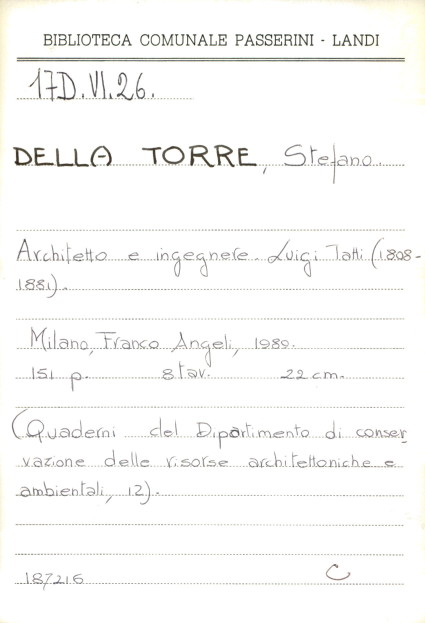 BIBLIOTECA COMUNALE PASSERINI - LANDI
17D.VI.26.
DELLA TORRE, Stefano.
Architetto e ingegnere. Luigi Tatti (1808-
1881).
Milano, Franco Angeli, 1989.
151 p. 8 tav. 22 cm.
(Quaderni del Dipartimento di conser-
vazione delle risorse architettoniche e
ambientali, 12).
187216 C